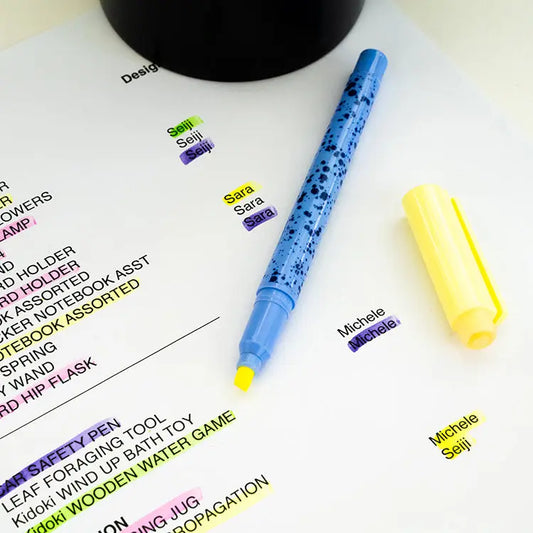 Design
Seiji
Seiji
Seiji
Sara
Sara
Sara
Michele
Michele
Michele
Seiji
HOLDER
HOLDER
ASSORTED
NOTEBOOK ASST
NOTEBOOK ASSORTED
SPRING
WAND
HIP FLASK
CAR SAFETY PEN
LEAF FORAGING TOOL
Kidoki WIND UP BATH TOY
Kidoki WOODEN WATER GAME
JUG
PROPAGATION